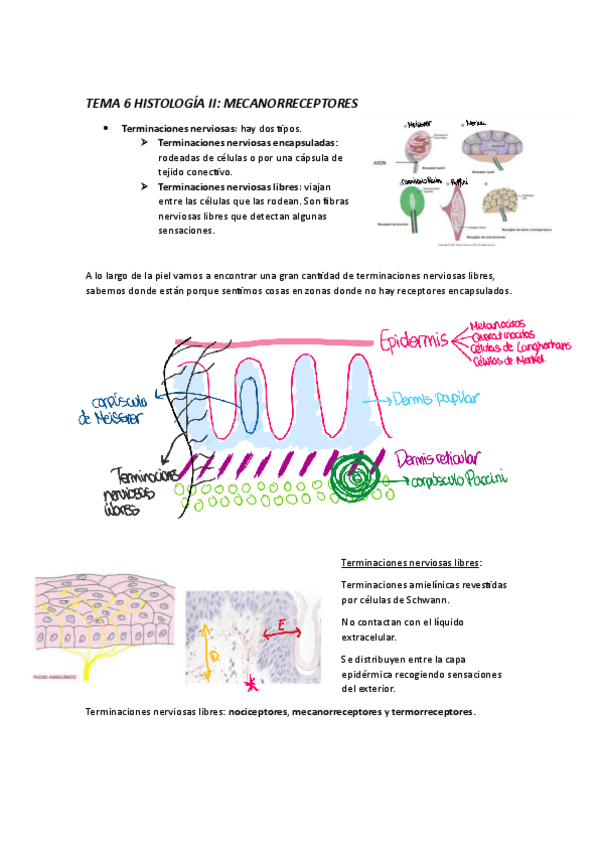 TEMA 6 HISTOLOGÍA II: MECANORRECEPTORES
• Terminaciones nerviosas: hay dos tipos.
➢ Terminaciones nerviosas encapsuladas:
rodeadas de células o por una cápsula de
tejido conectivo.
➢ Terminaciones nerviosas libres: viajan
entre las células que las rodean. Son fibras
nerviosas libres que detectan algunas
sensaciones.
Meissner
AXON
Receptor táctil
Receptor táctil
Ruffini
Receptor de presión
Receptor de dolor y temperatura
A lo largo de la piel vamos a encontrar una gran cantidad de terminaciones nerviosas libres,
sabemos donde están porque sentimos cosas en zonas donde no hay receptores encapsulados.
Epidermis
Melanocitos
Queratinocitos
Células de Langherhans
Células de Merkel
corpúsculo
de Meissner
Dermis papilar
Dermis reticular
corpúsculo Paccini
Terminaciones
nerviosas
libres
Terminaciones nerviosas libres:
Terminaciones amielínicas revestidas
por células de Schwann.
No contactan con el líquido
extracelular.
Se distribuyen entre la capa
epidérmica recogiendo sensaciones
del exterior.
E
D
PLEXO AMIELÍNICO
Terminaciones nerviosas libres: nociceptores, mecanorreceptores y termorreceptores.